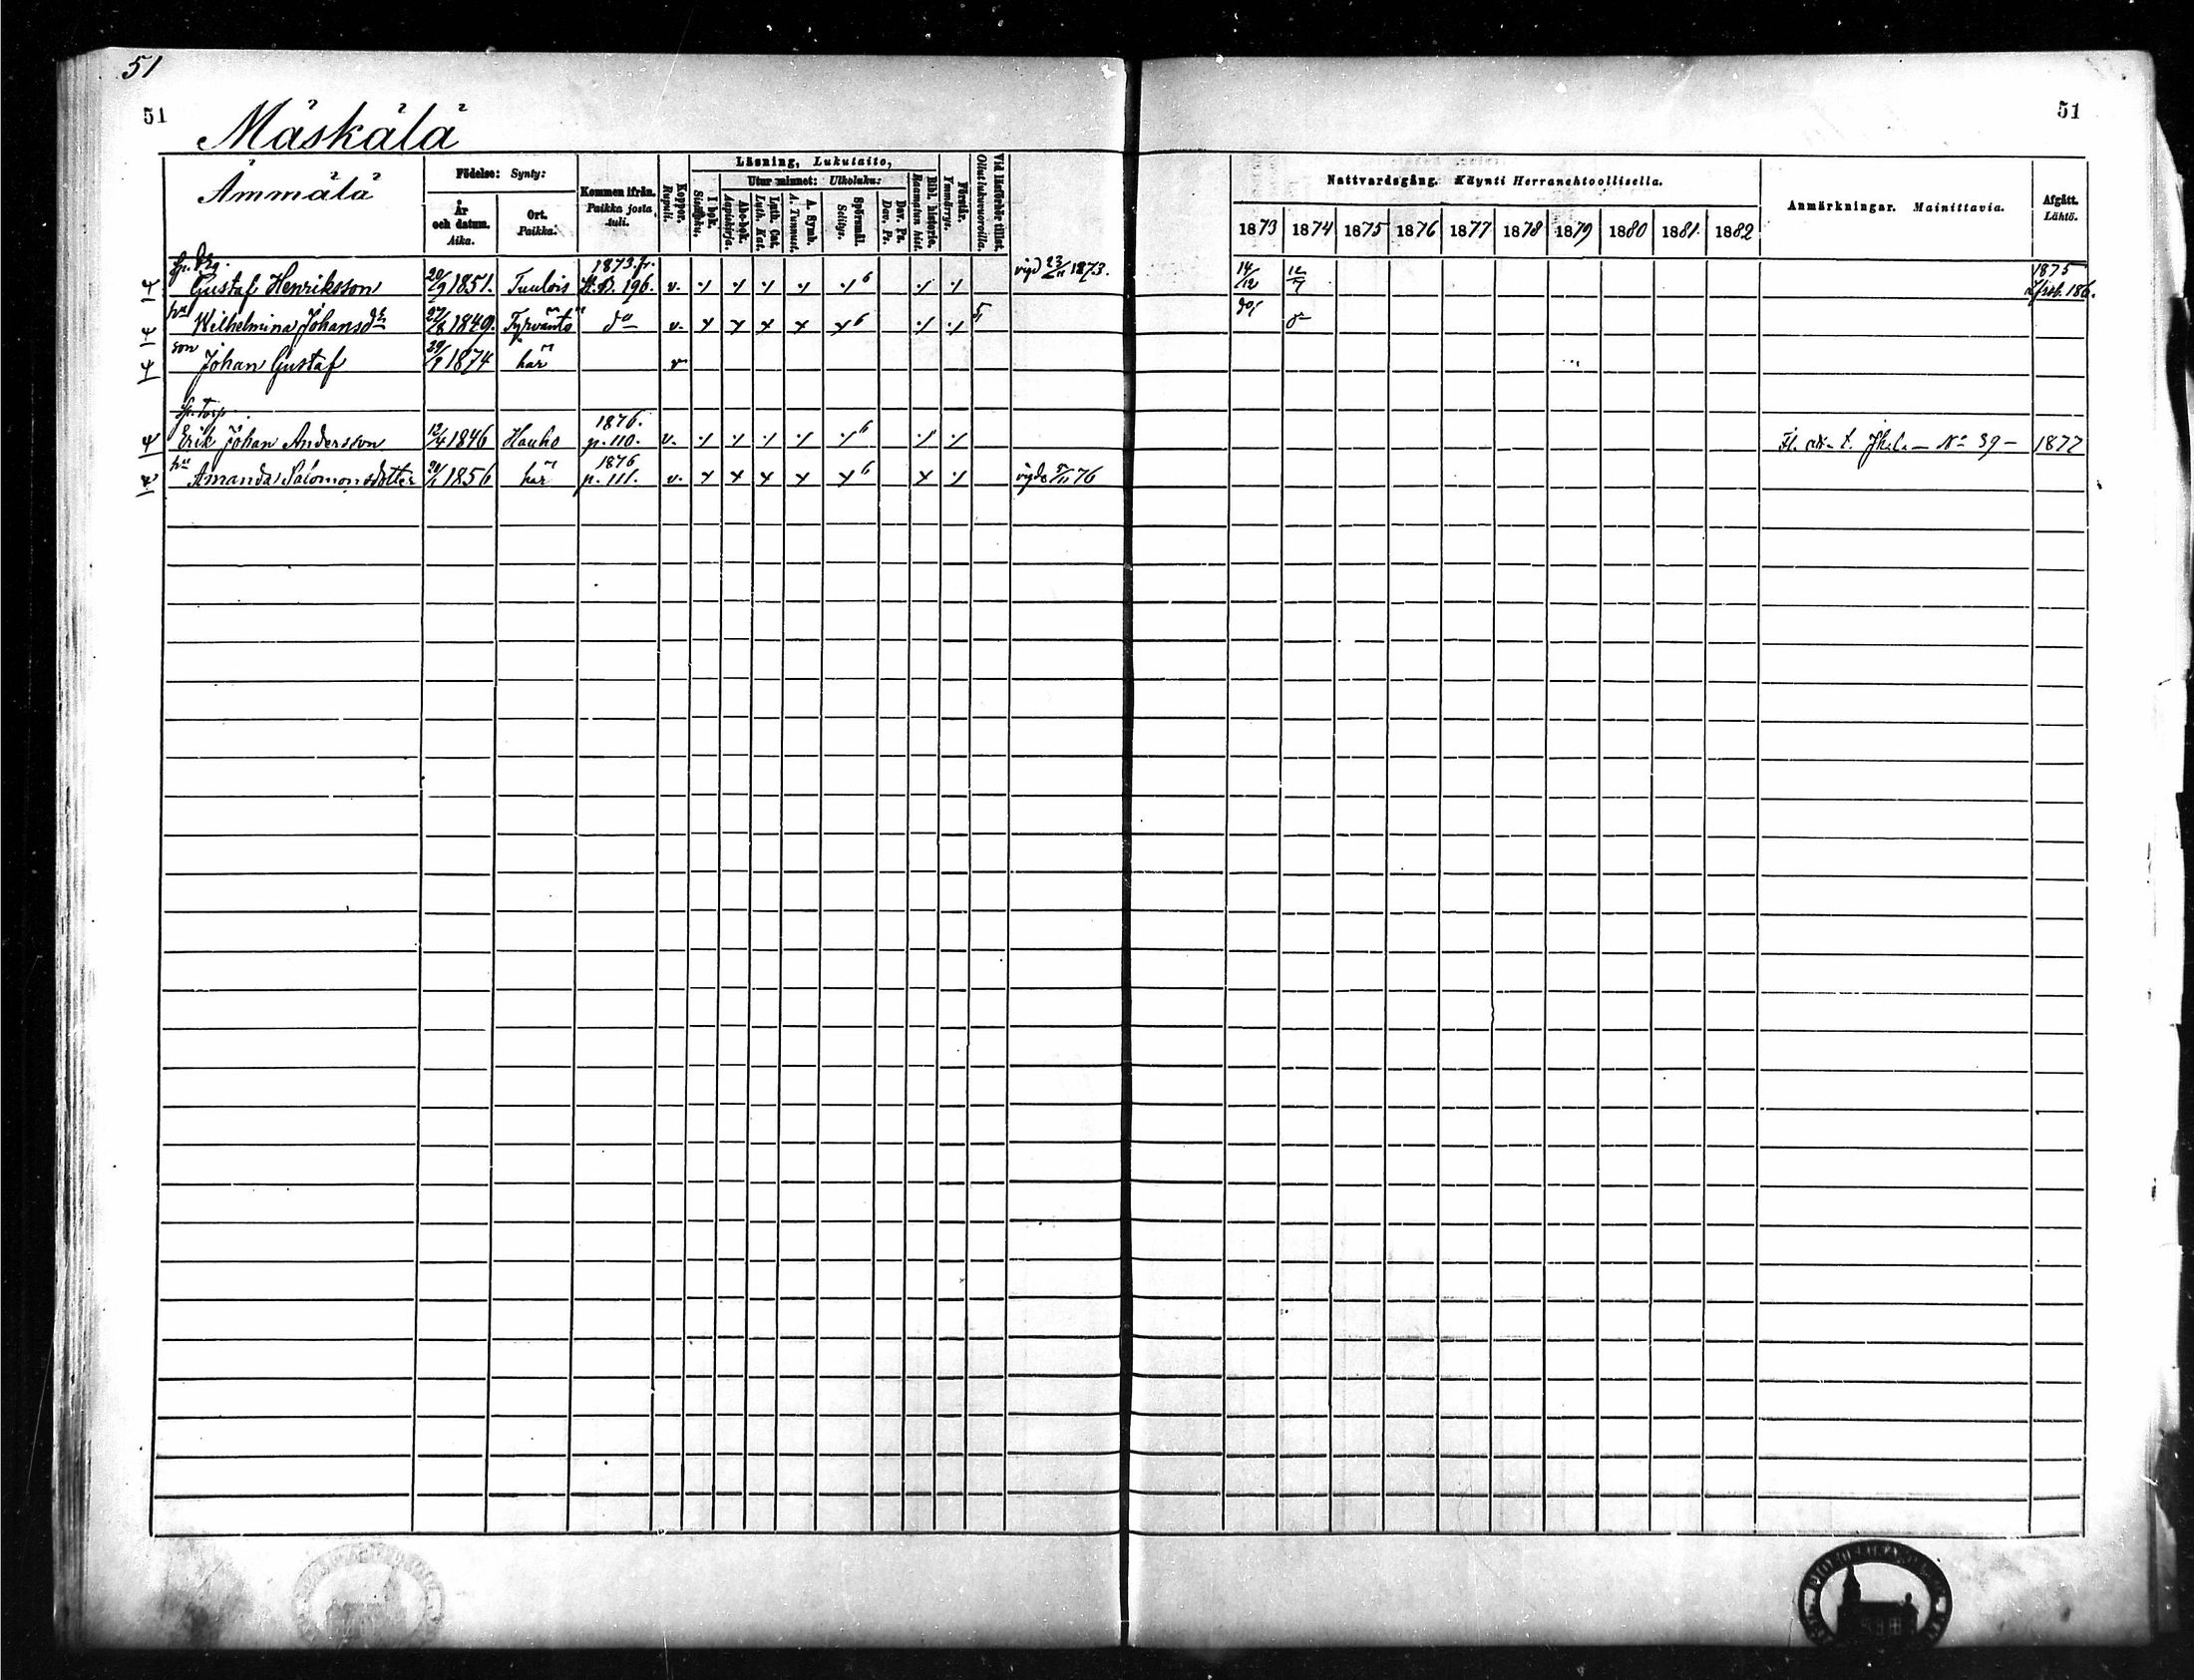 51
51
51
Mäskälä
Ämmälä
Födelse: Synty:
År och datum. Aika.
Ort. Paikka.
Kommen ifrån. Paikka josta tuli.
Koppor. Rupuli.
Läsning, Lukutaito,
I bok. Sisäluku.
Utur minnet: Ulkoluku:
Abc-bok. Aapiskirja.
Luth. Cat. Luth. Kat.
A. Symb. A. Tunnust.
Spörsmål. Selitys.
Dav. Ps. Dav. Ps.
Bibl. historia. Raamatun hist.
Förstår. Ymmärrys.
Vid läsförhör tillst. Ollut lukuvuoroilla.
Nattvardsgång. Käynti Herranehtoollisella.
1873 1874 1875 1876 1877 1878 1879 1880 1881 1882
Anmärkningar. Mainittavia.
Afgått. Lähtö.
Gustaf Henriksson 20/9 1851. Tuulois 1873 fr. 196. v. vigd 23/11 1873. 14/12 12/7 1875 186.
hu Wilhelmina Johansdr 27/8 1849. Tyrväntö do v. do
son Johan Gustaf 29/9 1874 här v
sp. Torp.
Erik Johan Andersson 12/4 1846 Hauho 1876. p. 110. v. No 39 1877
hu Amanda Salomonsdotter 20/1 1856 här 1876 p. 111. v. vigde 5/11 76